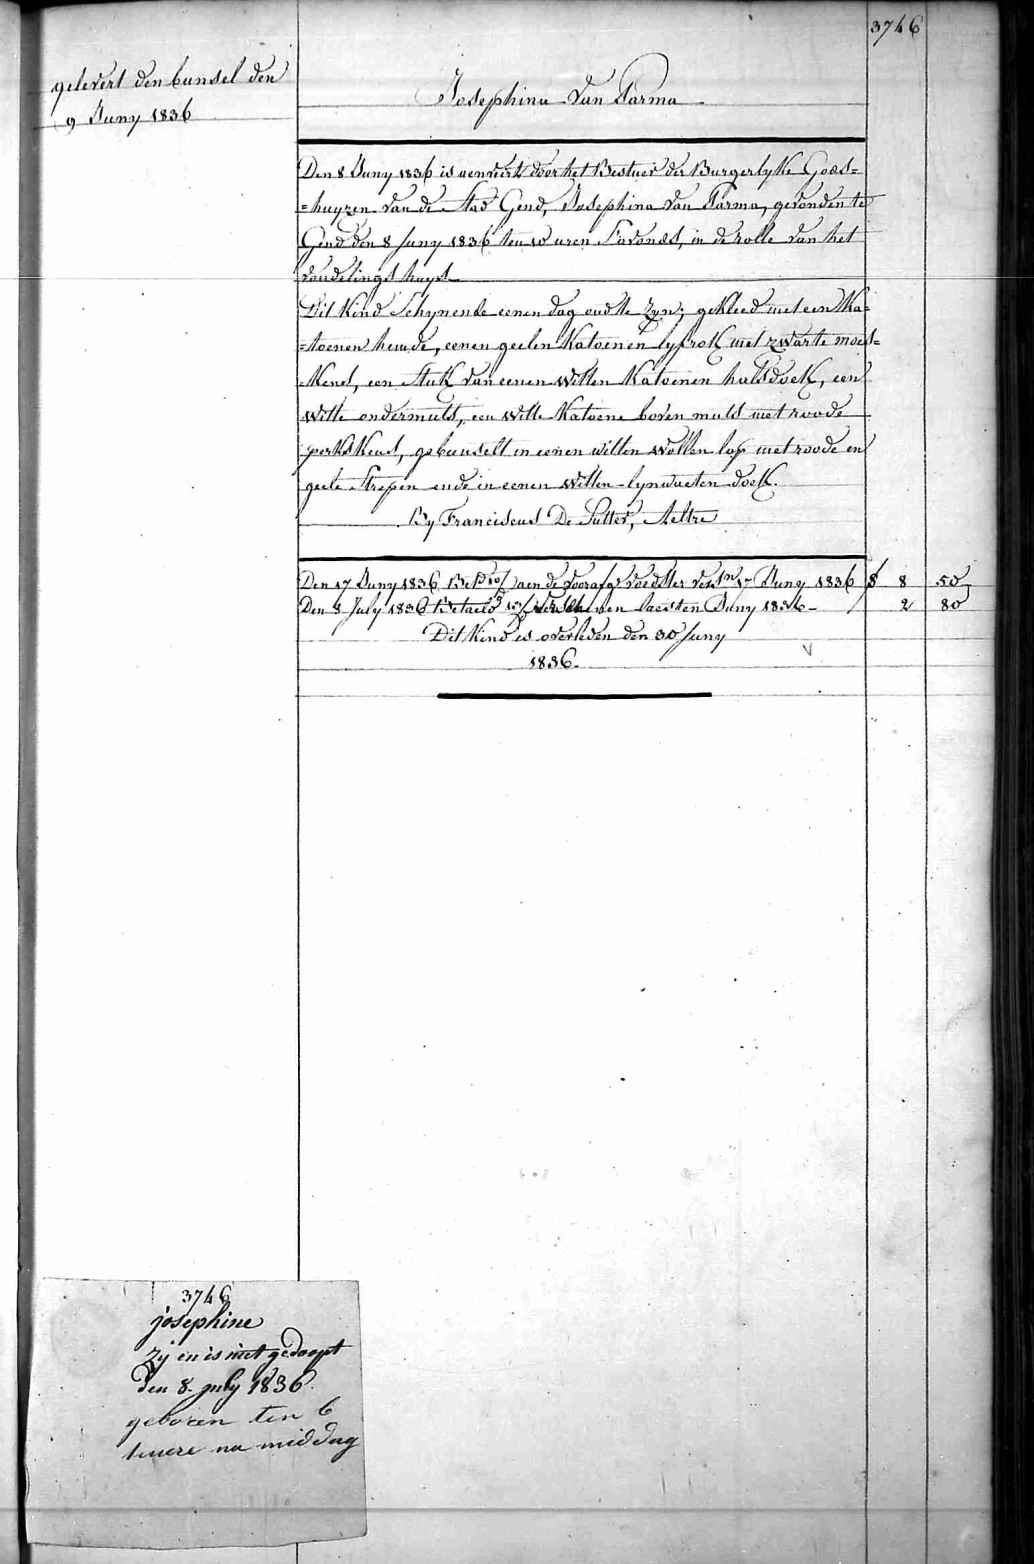 3746
gelevert den bunsel den
9 Juny 1836
Josephina Van Parma
Den 8 Juny 1836 is aenveird door het Bestuer der Burgerlyke Gods=
=huyzen van de Stad Gend, Josephina Van Parma, gevonden te
Gend den 8 Juny 1836 ten 10 uren S'avonds, in de rolle van het
vondelings huys
Dit Kind Schynende eenen dag oud te Zyn; gekleed met een Ka=
=toenen hemde, eenen geelen Katoenen lyfrok met zwarte moes=
=kens, een Stuk van eenen Witten Katoenen halsdoek, een
Witte ondermuts, een Witte Katoene boven muts met roode
perkskens, gebunselt in eenen witten Wollen lap met roode en
geele Strepen ende in eenen Witten lynwaeten doek.
By Franciscus De Sutter, Aeltre
Den 17 Juny 1836 aen de voorafg. voedster 17 Juny 1836 8 50
Den 8 July 1836 Betaeld laesten Juny 1836 - 2 80
Dit Kind is overleden den 30 Juny
1836.
3746
josephine
Zy en is niet gedoopt
den 8. july 1836.
geboren ten 6
huere na middag